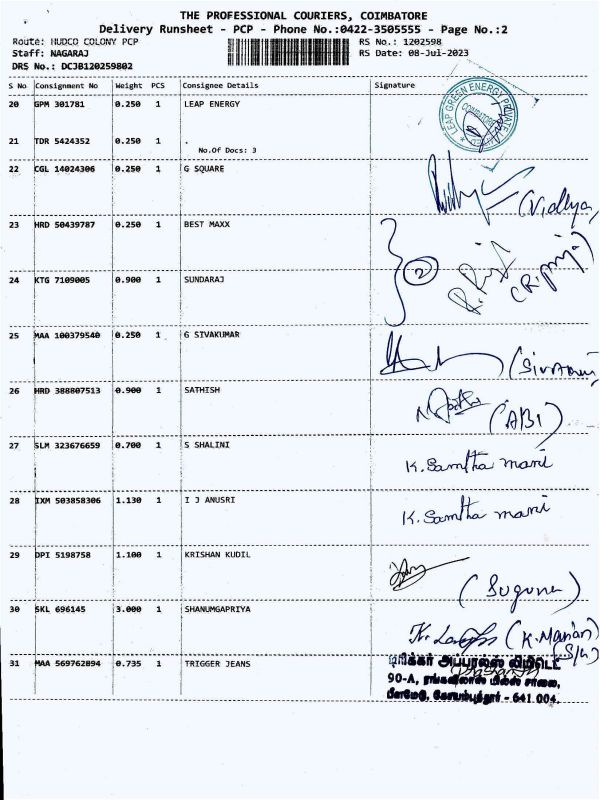 THE PROFESSIONAL COURIERS, COIMBATORE
Delivery Runsheet - PCP - Phone No.:0422-3505555 - Page No.:2
Route: HUDCO COLONY PCP RS No.: 1202598
Staff: NAGARAJ RS Date: 08-Jul-2023
DRS No.: DCJB120259802
S No Consignment No Weight PCS Consignee Details Signature
20 GPM 301781 0.250 1 LEAP ENERGY
LEAP GREEN ENERGY PRIVATE
COIMBATORE
21 TDR 5424352 0.250 1 .
No.Of Docs: 3
22 CGL 14024306 0.250 1 G SQUARE
(Vidhya)
23 HRD 50439787 0.250 1 BEST MAXX
2 R. Priya (R. priya)
24 KTG 7109005 0.900 1 SUNDARAJ
25 MAA 100379540 0.250 1 G SIVAKUMAR
26 HRD 388807513 0.900 1 SATHISH
(ABI)
27 SLM 323676659 0.700 1 S SHALINI
K. Samtha mani
28 IXM 503858306 1.130 1 I J ANUSRI
K. Samtha mani
29 DPI 5198758 1.100 1 KRISHAN KUDIL
(Suguna)
30 SKL 696145 3.000 1 SHANUMGAPRIYA
31 MAA 569762894 0.735 1 TRIGGER JEANS
டிரிக்கர் அப்பாரல்ஸ் லிமிடெட்
90-A, ரங்கவிலாஸ் மில்ஸ் சாலை,
பீளமேடு, கோயம்புத்தூர் - 641 004.